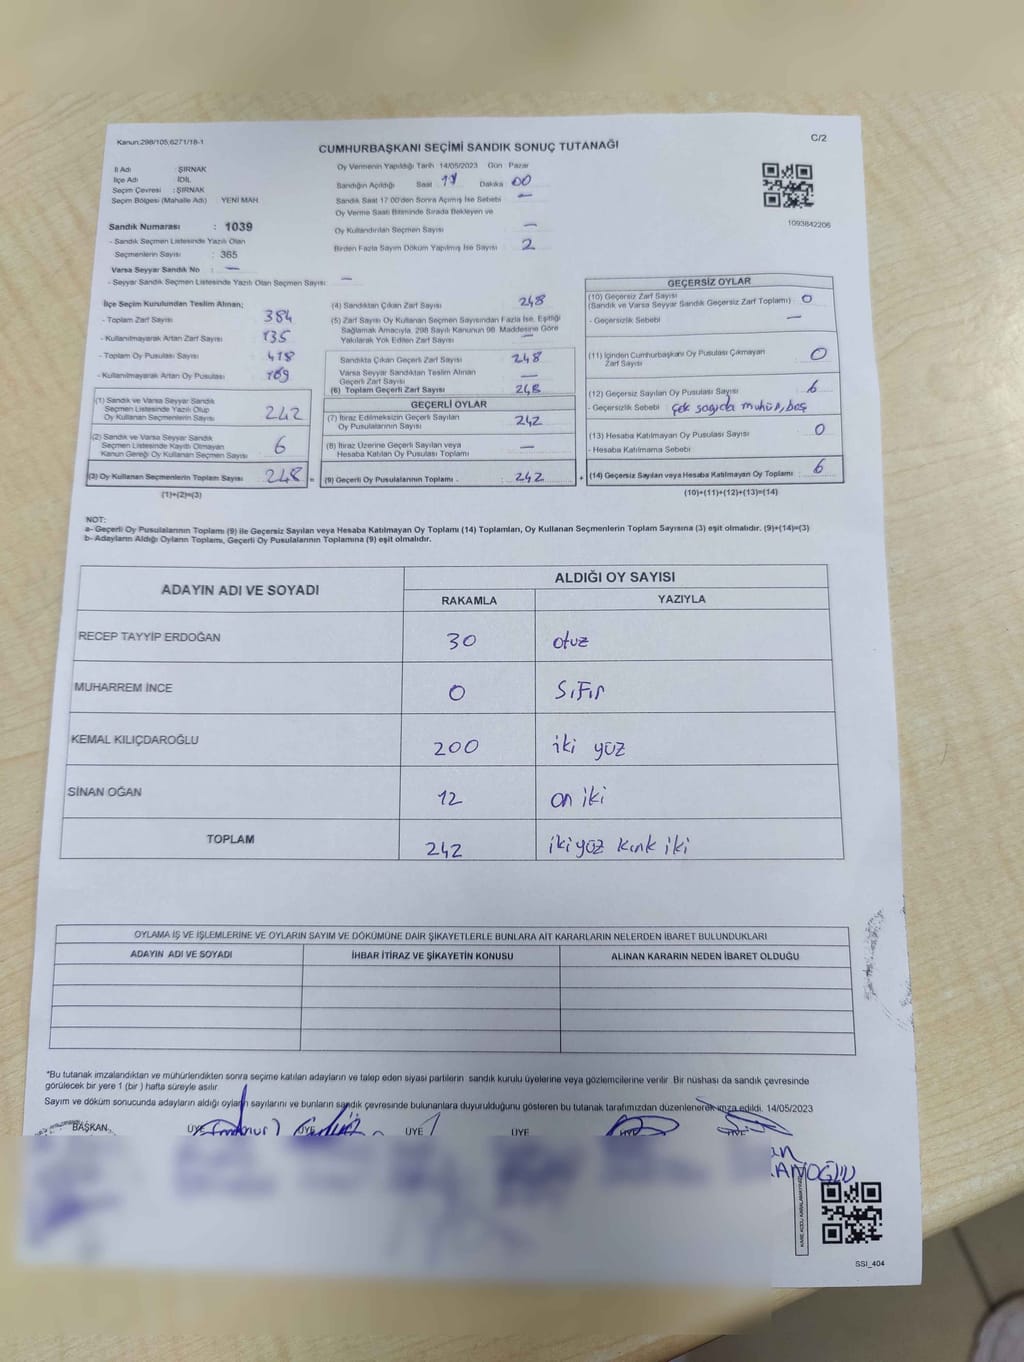 Kanun:298/105;6271/18-1
C/2
CUMHURBAŞKANI SEÇİMİ SANDIK SONUÇ TUTANAĞI
İl Adı : ŞIRNAK
İlçe Adı : İDİL
Seçim Çevresi : ŞIRNAK
Seçim Bölgesi (Mahalle Adı) YENİ MAH
Sandık Numarası : 1039
- Sandık Seçmen Listesinde Yazılı Olan
Seçmenlerin Sayısı : 365
Varsa Seyyar Sandık No : —
- Seyyar Sandık Seçmen Listesinde Yazılı Olan Seçmen Sayısı : —
Oy Vermenin Yapıldığı Tarih 14/05/2023 Gün Pazar
Sandığın Açıldığı Saat 17 Dakika 00
Sandık Saat 17.00'den Sonra Açılmış İse Sebebi —
Oy Verme Saati Bitiminde Sırada Bekleyen ve
Oy Kullandırılan Seçmen Sayısı —
Birden Fazla Sayım Döküm Yapılmış İse Sayısı 2
1093842206
İlçe Seçim Kurulundan Teslim Alınan;
- Toplam Zarf Sayısı 384
- Kullanılmayarak Artan Zarf Sayısı 135
- Toplam Oy Pusulası Sayısı 418
- Kullanılmayarak Artan Oy Pusulası 169
(1) Sandık ve Varsa Seyyar Sandık
Seçmen Listesinde Yazılı Olup
Oy Kullanan Seçmenlerin Sayısı 242
(2) Sandık ve Varsa Seyyar Sandık
Seçmen Listesinde Kayıtlı Olmayan
Kanun Gereği Oy Kullanan Seçmen Sayısı 6
(3) Oy Kullanan Seçmenlerin Toplam Sayısı 248 =
(1)+(2)=(3)
(4) Sandıktan Çıkan Zarf Sayısı 248
(5) Zarf Sayısı Oy Kullanan Seçmen Sayısından Fazla İse, Eşitliği
Sağlamak Amacıyla, 298 Sayılı Kanunun 98. Maddesine Göre
Yakılarak Yok Edilen Zarf Sayısı —
Sandıkta Çıkan Geçerli Zarf Sayısı 248
Varsa Seyyar Sandıktan Teslim Alınan
Geçerli Zarf Sayısı —
(6) Toplam Geçerli Zarf Sayısı 248
GEÇERLİ OYLAR
(7) İtiraz Edilmeksizin Geçerli Sayılan
Oy Pusulasının Sayısı 242
(8) İtiraz Üzerine Geçerli Sayılan veya
Hesaba Katılan Oy Pusulası Toplamı —
(9) Geçerli Oy Pusulalarının Toplamı : 242 +
GEÇERSİZ OYLAR
(10) Geçersiz Zarf Sayısı
(Sandık ve Varsa Seyyar Sandık Geçersiz Zarf Toplamı) 0
- Geçersizlik Sebebi : —
(11) İçinden Cumhurbaşkanı Oy Pusulası Çıkmayan
Zarf Sayısı 0
(12) Geçersiz Sayılan Oy Pusulası Sayısı 6
- Geçersizlik Sebebi
(13) Hesaba Katılmayan Oy Pusulası Sayısı 0
- Hesaba Katılmama Sebebi
(14) Geçersiz Sayılan veya Hesaba Katılmayan Oy Toplamı : 6
(10)+(11)+(12)+(13)=(14)
NOT:
a- Geçerli Oy Pusulalarının Toplamı (9) ile Geçersiz Sayılan veya Hesaba Katılmayan Oy Toplamı (14) Toplamları, Oy Kullanan Seçmenlerin Toplam Sayısına (3) eşit olmalıdır. (9)+(14)=(3)
b- Adayların Aldığı Oyların Toplamı, Geçerli Oy Pusulalarının Toplamına (9) eşit olmalıdır.
ADAYIN ADI VE SOYADI ALDIĞI OY SAYISI
RAKAMLA YAZIYLA
RECEP TAYYİP ERDOĞAN 30 otuz
MUHARREM İNCE 0 SıFır
KEMAL KILIÇDAROĞLU 200 iki yüz
SİNAN OĞAN 12 on iki
TOPLAM 242 iki yüz kırk iki
OYLAMA İŞ VE İŞLEMLERİNE VE OYLARIN SAYIM VE DÖKÜMÜNE DAİR ŞİKAYETLERLE BUNLARA AİT KARARLARIN NELERDEN İBARET BULUNDUKLARI
ADAYIN ADI VE SOYADI İHBAR İTİRAZ VE ŞİKAYETİN KONUSU ALINAN KARARIN NEDEN İBARET OLDUĞU
*Bu tutanak imzalandıktan ve mühürlendikten sonra seçime katılan adayların ve talep eden siyasi partilerin sandık kurulu üyelerine veya gözlemcilerine verilir. Bir nüshası da sandık çevresinde
görülecek bir yere 1 (bir ) hafta süreyle asılır.
Sayım ve döküm sonucunda adayların aldığı oyların sayılarını ve bunların sandık çevresinde bulunanlara duyurulduğunu gösteren bu tutanak tarafımızdan düzenlenerek imza edildi. 14/05/2023
BAŞKAN ÜYE ÜYE ÜYE ÜYE ÜYE ÜYE
SSI_404